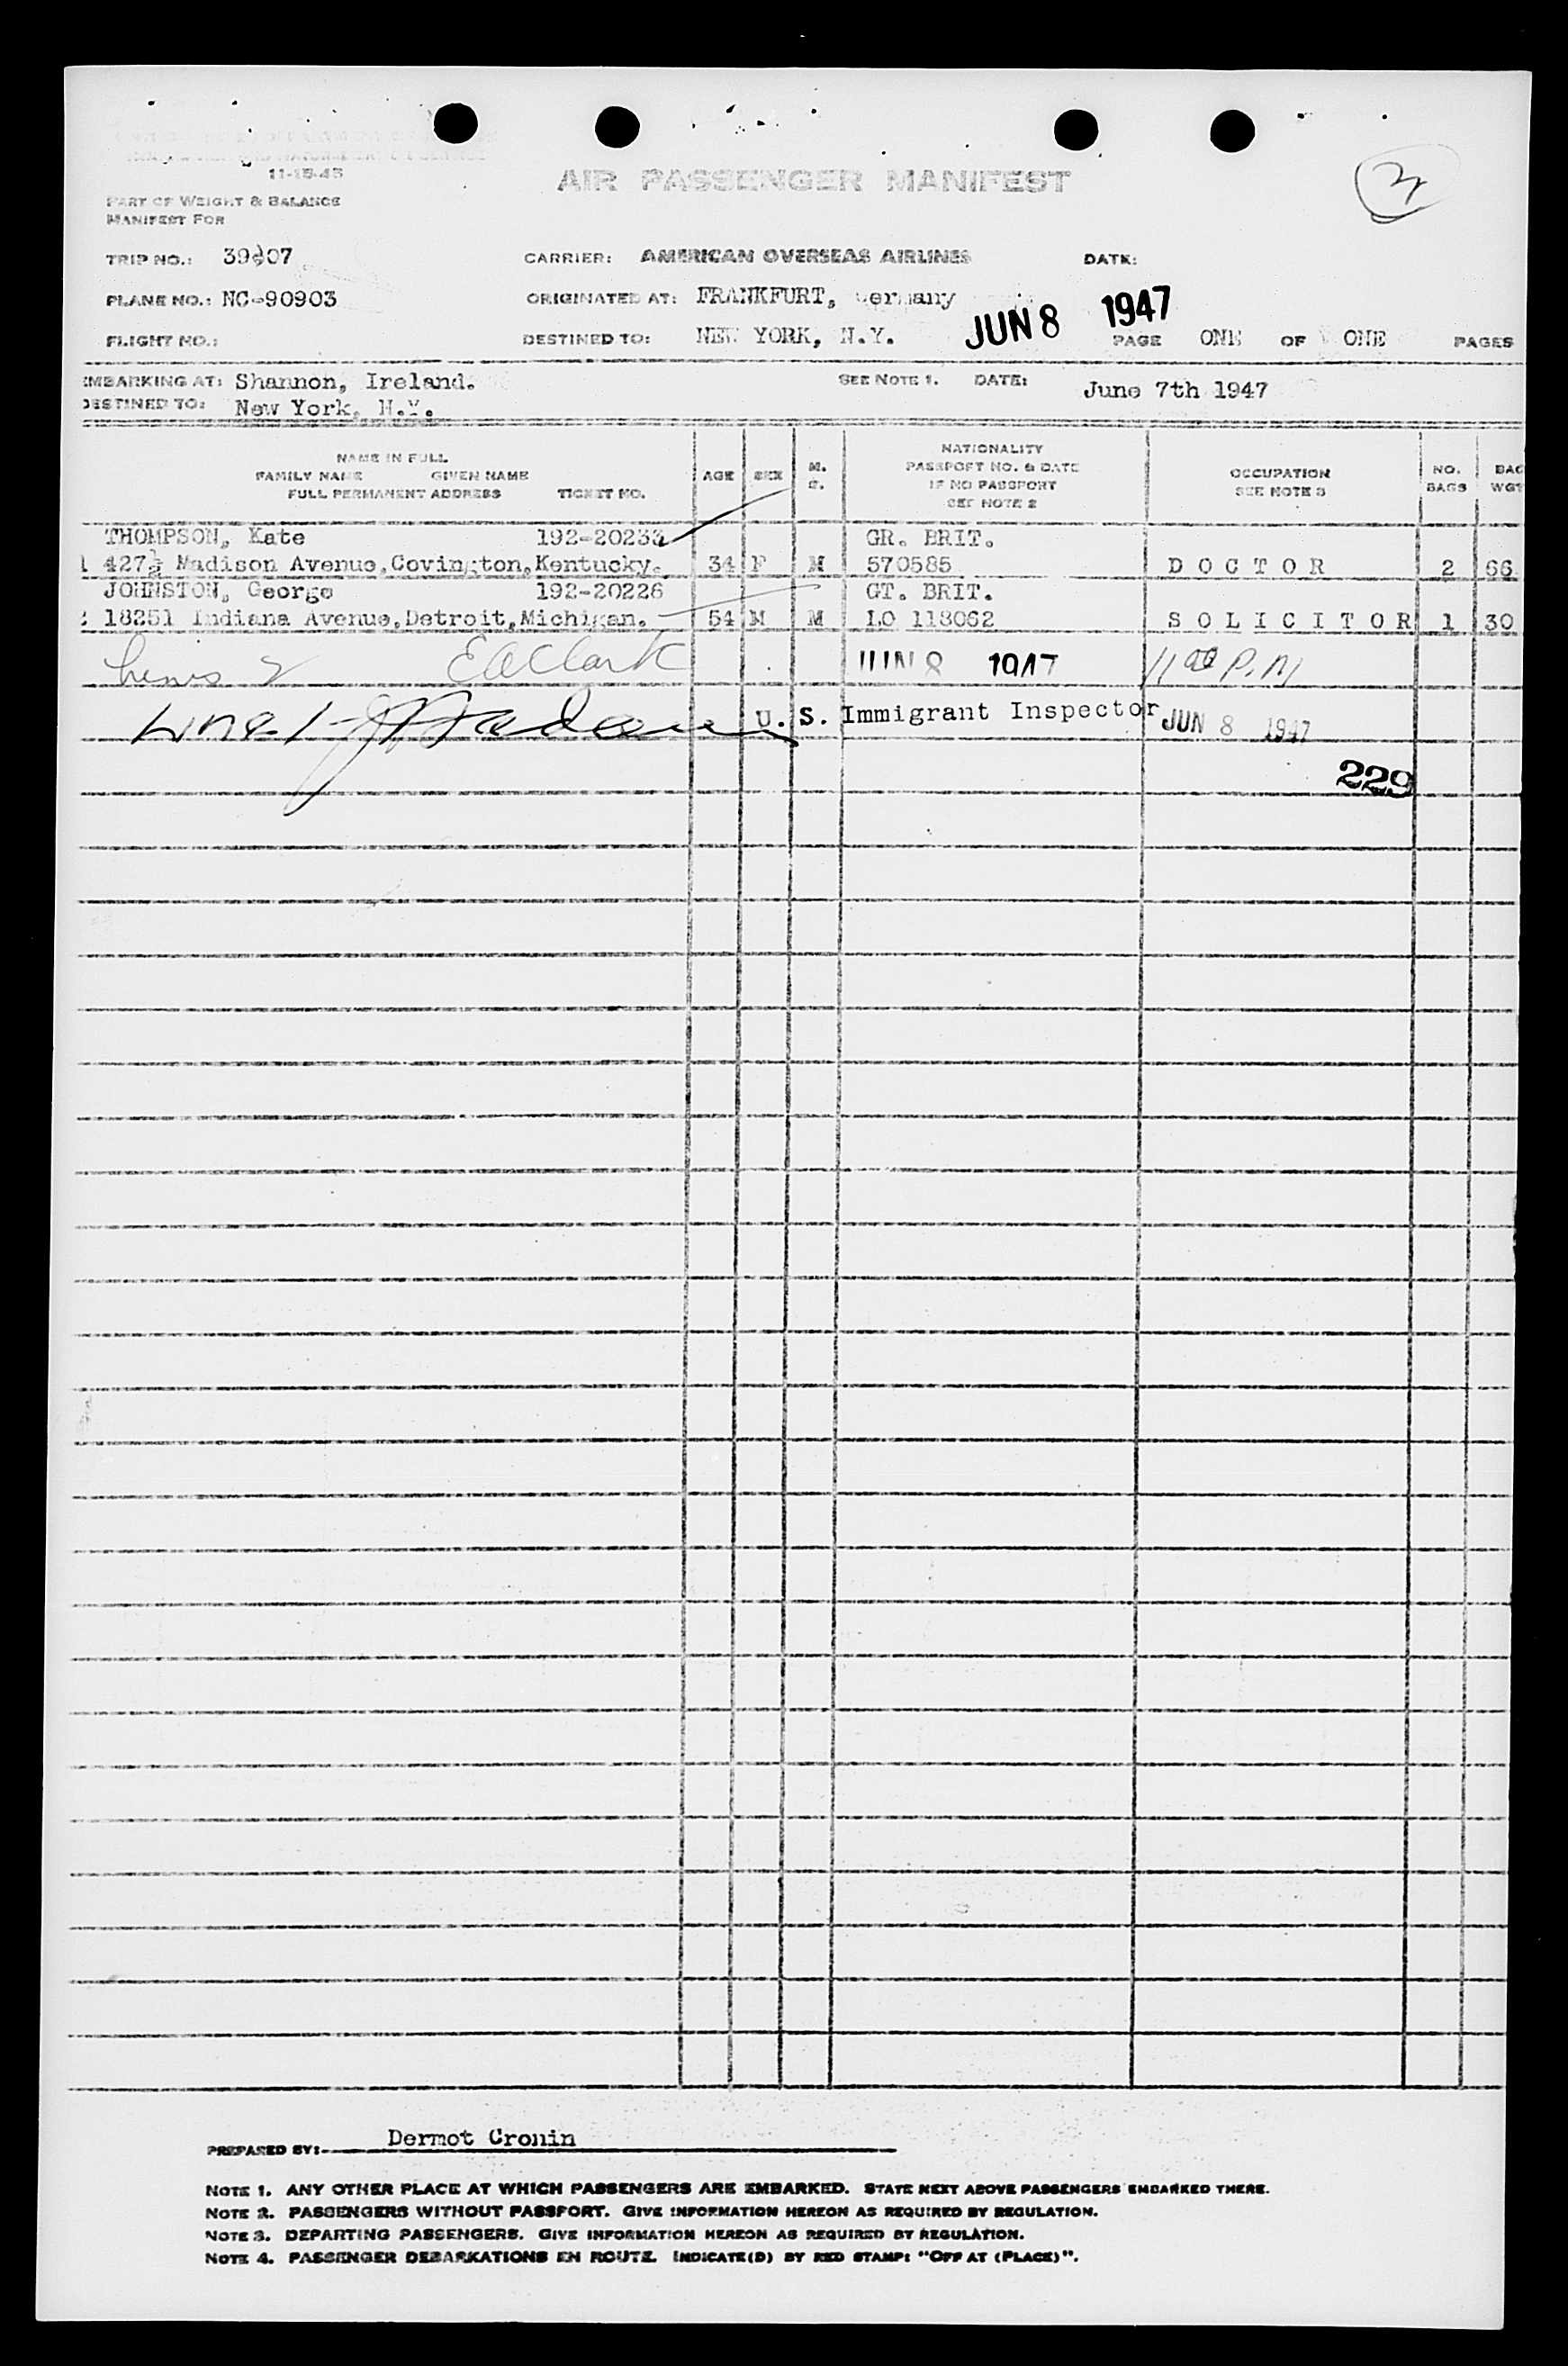 11-15-45
AIR PASSENGER MANIFEST
PART OF WEIGHT & BALANCE
MANIFEST FOR
TRIP NO.: CARRIER: AMERICAN OVERSEAS AIRLINES DATE:
PLANE NO.: NC-90903 ORIGINATED AT: FRANKFURT, Germany JUN 8 1947
FLIGHT NO.: DESTINED TO: NEW YORK, N.Y. PAGE ONE OF ONE PAGES
EMBARKING AT: Shannon, Ireland. SEE NOTE 1. DATE: June 7th 1947
DESTINED TO: New York, N.Y.
NAME IN FULL
FAMILY NAME GIVEN NAME
FULL PERMANENT ADDRESS TICKET NO. AGE SEX M. S. NATIONALITY PASSPORT NO. & DATE IF NO PASSPORT SEE NOTE 2 OCCUPATION SEE NOTE 3 NO. BAGS BAG WGT
THOMPSON, Kate 192-20233 GR. BRIT.
1 427½ Madison Avenue, Covington, Kentucky. 34 F M 570585 D O C T O R 2 66
JOHNSTON, George 192-20226 GT. BRIT.
2 18251 Indiana Avenue, Detroit, Michigan. 54 M M LO 118062 S O L I C I T O R 1 30
2 E A Clark JUN 8 1947 11 00 P.M
Line 1 - U. S. Immigrant Inspector JUN 8 1947
229
PREPARED BY: Dermot Cronin
NOTE 1. ANY OTHER PLACE AT WHICH PASSENGERS ARE EMBARKED. STATE NEXT ABOVE PASSENGERS EMBARKED THERE.
NOTE 2. PASSENGERS WITHOUT PASSPORT. GIVE INFORMATION HEREON AS REQUIRED BY REGULATION.
NOTE 3. DEPARTING PASSENGERS. GIVE INFORMATION HEREON AS REQUIRED BY REGULATION.
NOTE 4. PASSENGER DEBARKATIONS EN ROUTE. INDICATE(D) BY RED STAMP: "OFF AT (PLACE)".